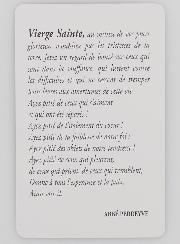 Vierge Sainte, au milieu de vos jours
glorieux n'oubliez pas les tristesses de la
terre. Jetez un regard de bonté sur ceux qui
sont dans la souffrance, qui luttent contre
les difficultés et qui ne cessent de tremper
leurs lèvres aux amertumes de cette vie.
Ayez pitié de ceux qui s'aiment
et qui ont été séparés !
Ayez pitié de l'isolement du cœur !
Ayez pitié de la faiblesse de notre foi !
Ayez pitié des objets de notre tendresse !
Ayez pitié de ceux qui pleurent,
de ceux qui prient, de ceux qui tremblent,
Donnez à tous l'espérance et la paix.
Ainsi soit-il.
ANNÉ PERREYVE